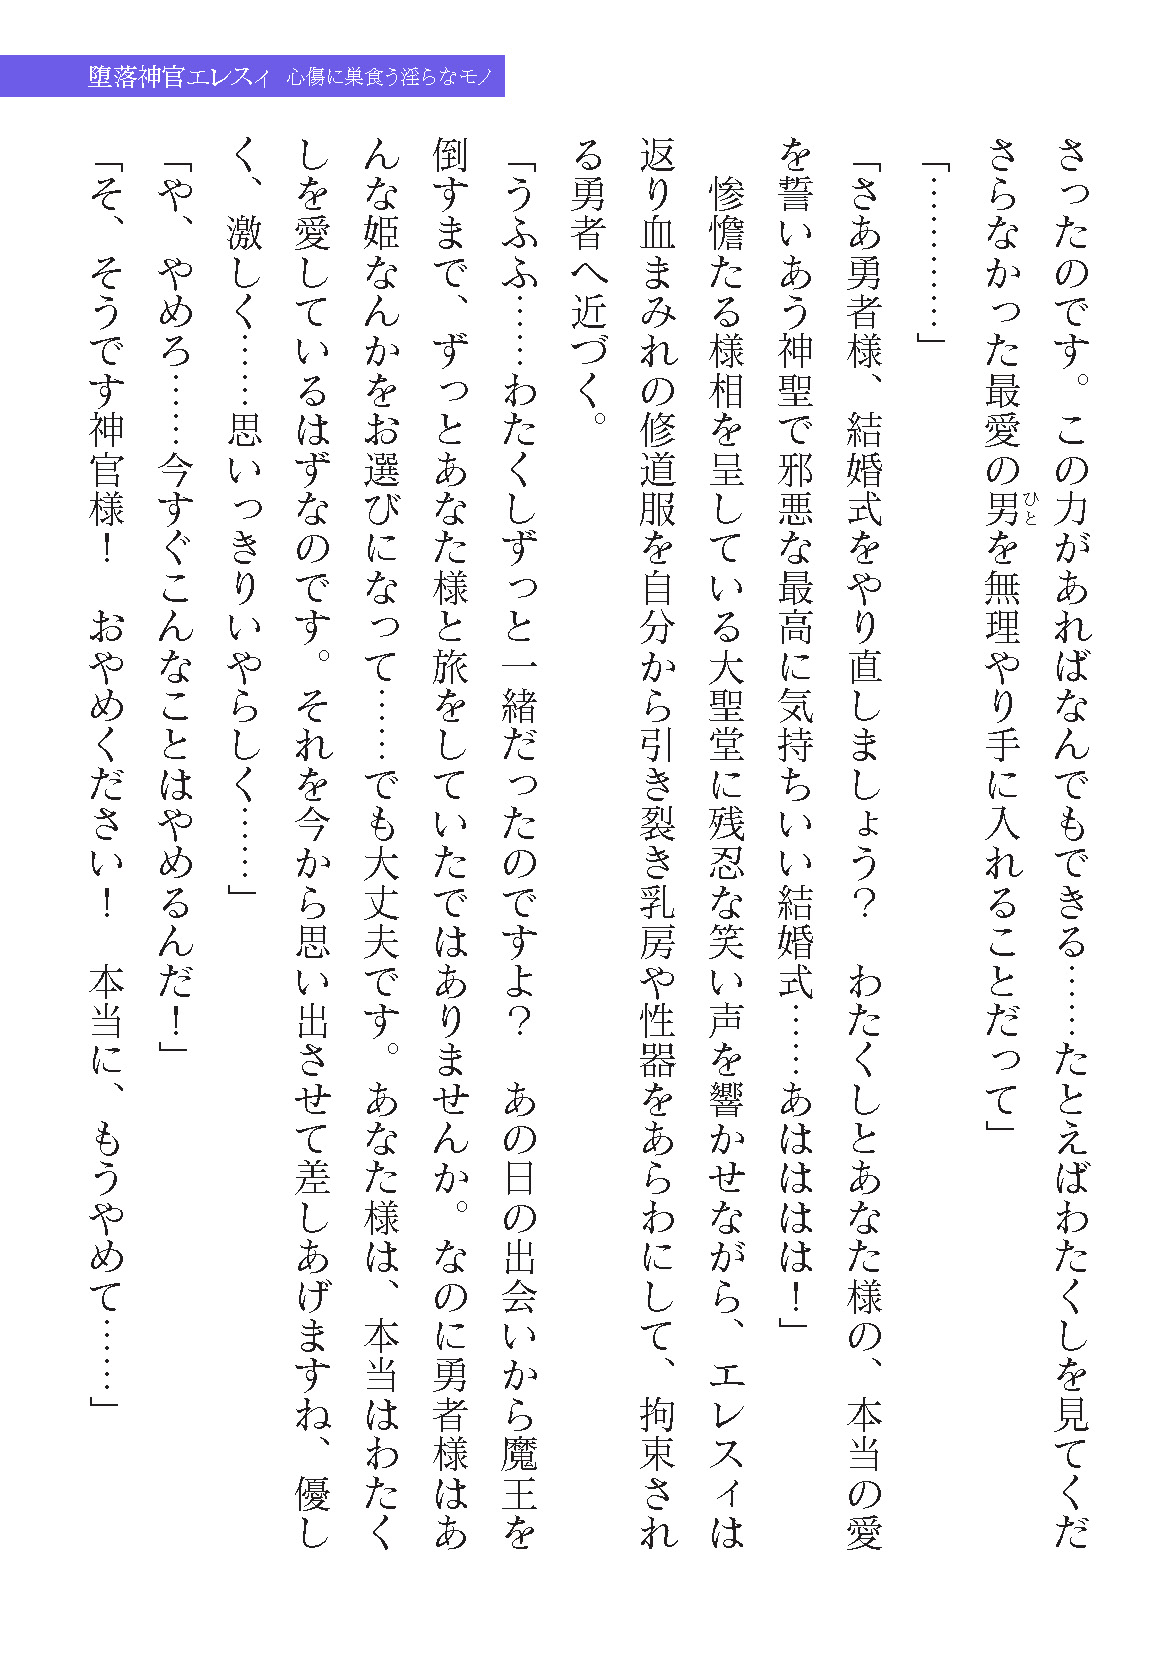 堕落神官エレスィ 心傷に巣食う淫らなモノ
さったのです。この力があればなんでもできる……たとえばわたくしを見てくだ
さらなかった最愛の男を無理やり手に入れることだって」
ひと
「…………」
「さあ勇者様、結婚式をやり直しましょう？　わたくしとあなた様の、本当の愛
を誓いあう神聖で邪悪な最高に気持ちいい結婚式……あはははは！」
　惨憺たる様相を呈している大聖堂に残忍な笑い声を響かせながら、エレスィは
返り血まみれの修道服を自分から引き裂き乳房や性器をあらわにして、拘束され
る勇者へ近づく。
「うふふ……わたくしずっと一緒だったのですよ？　あの日の出会いから魔王を
倒すまで、ずっとあなた様と旅をしていたではありませんか。なのに勇者様はあ
んな姫なんかをお選びになって……でも大丈夫です。あなた様は、本当はわたく
しを愛しているはずなのです。それを今から思い出させて差しあげますね、優し
く、激しく……思いっきりいやらしく……」
「や、やめろ……今すぐこんなことはやめるんだ！」
「そ、そうです神官様！　おやめください！　本当に、もうやめて……」